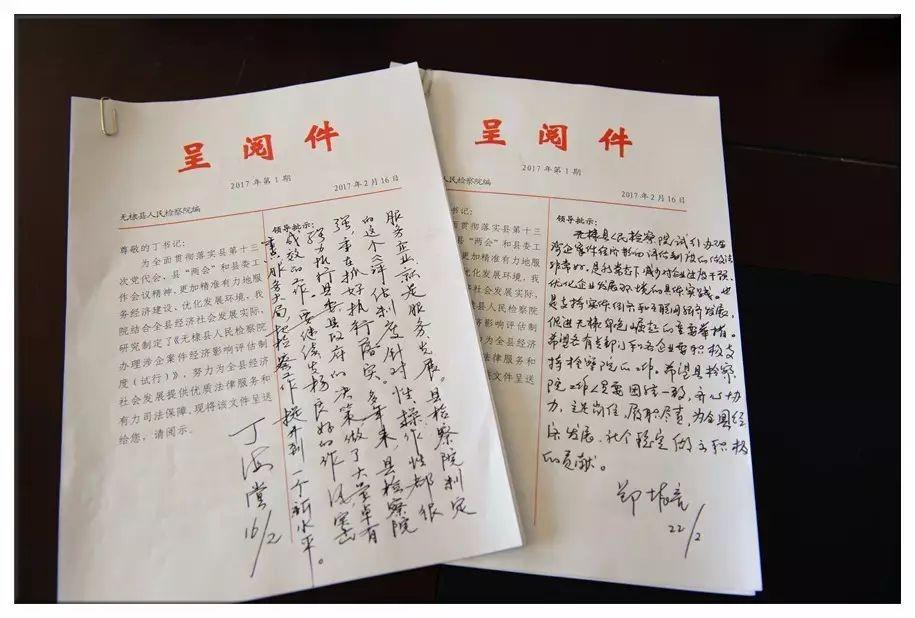 呈阅件
2017年第1期 2017年2月16日
无棣县人民检察院编
尊敬的丁书记:
为全面贯彻落实县第十三
次党代会、县“两会”和县委工
作会议精神,更加精准有力地服
务经济建设、优化发展环境,我
院结合全县经济社会发展实际,
研究制定了《无棣县人民检察院
办理涉企案件经济影响评估制
度(试行)》,努力为全县经济
社会发展提供优质法律服务和
有力司法保障。现将该文件呈送
给您,请阅示。
领导批示:
服务企业就是服务发展。县检察院制定
的这个《评估制度》针对性操作性都很
强,重在抓好执行落实。多年来,县检察院
努力执行县委县政府的决策做了大量卓有
成效的工作。要继续发扬良好的作风
服务大局把检察工作提升到一个新水平。
丁海堂
16/2
呈阅件
2017年第1期
2017年2月16日
民检察院编
书记:
面贯彻落实县第十三
县“两会”和县委工
申,更加精准有力地服
、优化发展环境,我
经济社会发展实际,
无棣县人民检察院
经济影响评估制
努力为全县经济
质法律服务和
该文件呈送
领导批示:
无棣县人民检察院《试行办理
涉企案件经济影响评估制度》的做法
非常好,是新常态下减少对企业法度干预,
优化企业发展环境的具体实践。也
是支持实体
促进无棣 崛起的重要举措。
希望各有关部门和各企业要积极支
持检察院的工作。希望县检察
院工作人员要团结一致,齐心协
力,立足岗位,履职尽责,为全县经
济发展、社会稳定做出积极
的贡献。
22/2